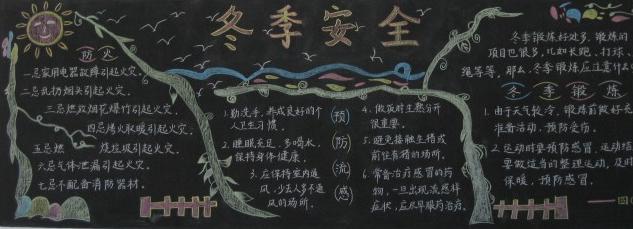 冬季安全
防火
一忌家用电器故障引起火灾。
二忌乱扔烟头引起火灾。
三忌燃放烟花爆竹引起火灾。
四忌烤火取暖引起火灾。
五忌燃 烧垃圾引起火灾。
六忌气体泄漏引起火灾。
七忌不配备消防器材。
预防流感
1.勤洗手,养成良好的个
人卫生习惯。
2.睡眠充足,多喝水,
保持身体健康。
3.应保持室内通
风,少去人多不通
风的场所。
4.做饭时生熟分开
很重要。
5.避免接触生猪或
前往有猪的场所。
6.常备治疗感冒的药
物,一旦出现流感样
症状,应尽早服药治疗。
冬季锻炼好处多,锻炼的
项目也很多,比如长跑、打球、
绳等等。那么,冬季锻炼应注意什么
冬季锻炼
1.由于天气较冷,锻炼前做好
准备活动,预防受伤。
2.运动时要预防感冒,运动结
要做适当的整理运动,及时
保暖,预防感冒。